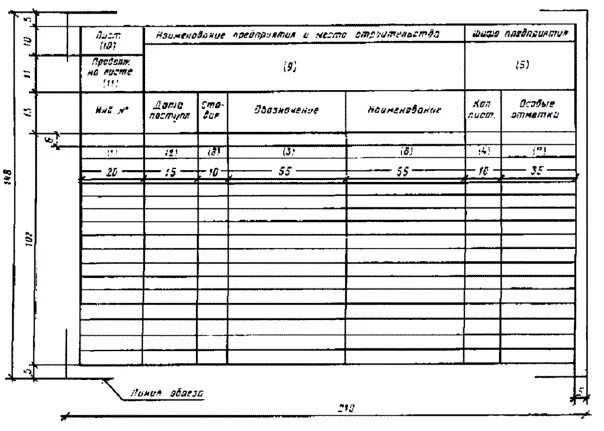 Лист (10)
Наименование предприятия и место строительства
Шифр предприятия
Продолж. на листе (11)
(9)
(5)
Инв №
Дата поступл
Ста-дия
Обозначение
Наименование
Кол лист.
Особые отметки
(1)
(2)
(8)
(3)
(6)
(4)
(7)
20
15
10
55
55
10
35
5
10
11
15
6
148
102
5
Линия обреза
5
210